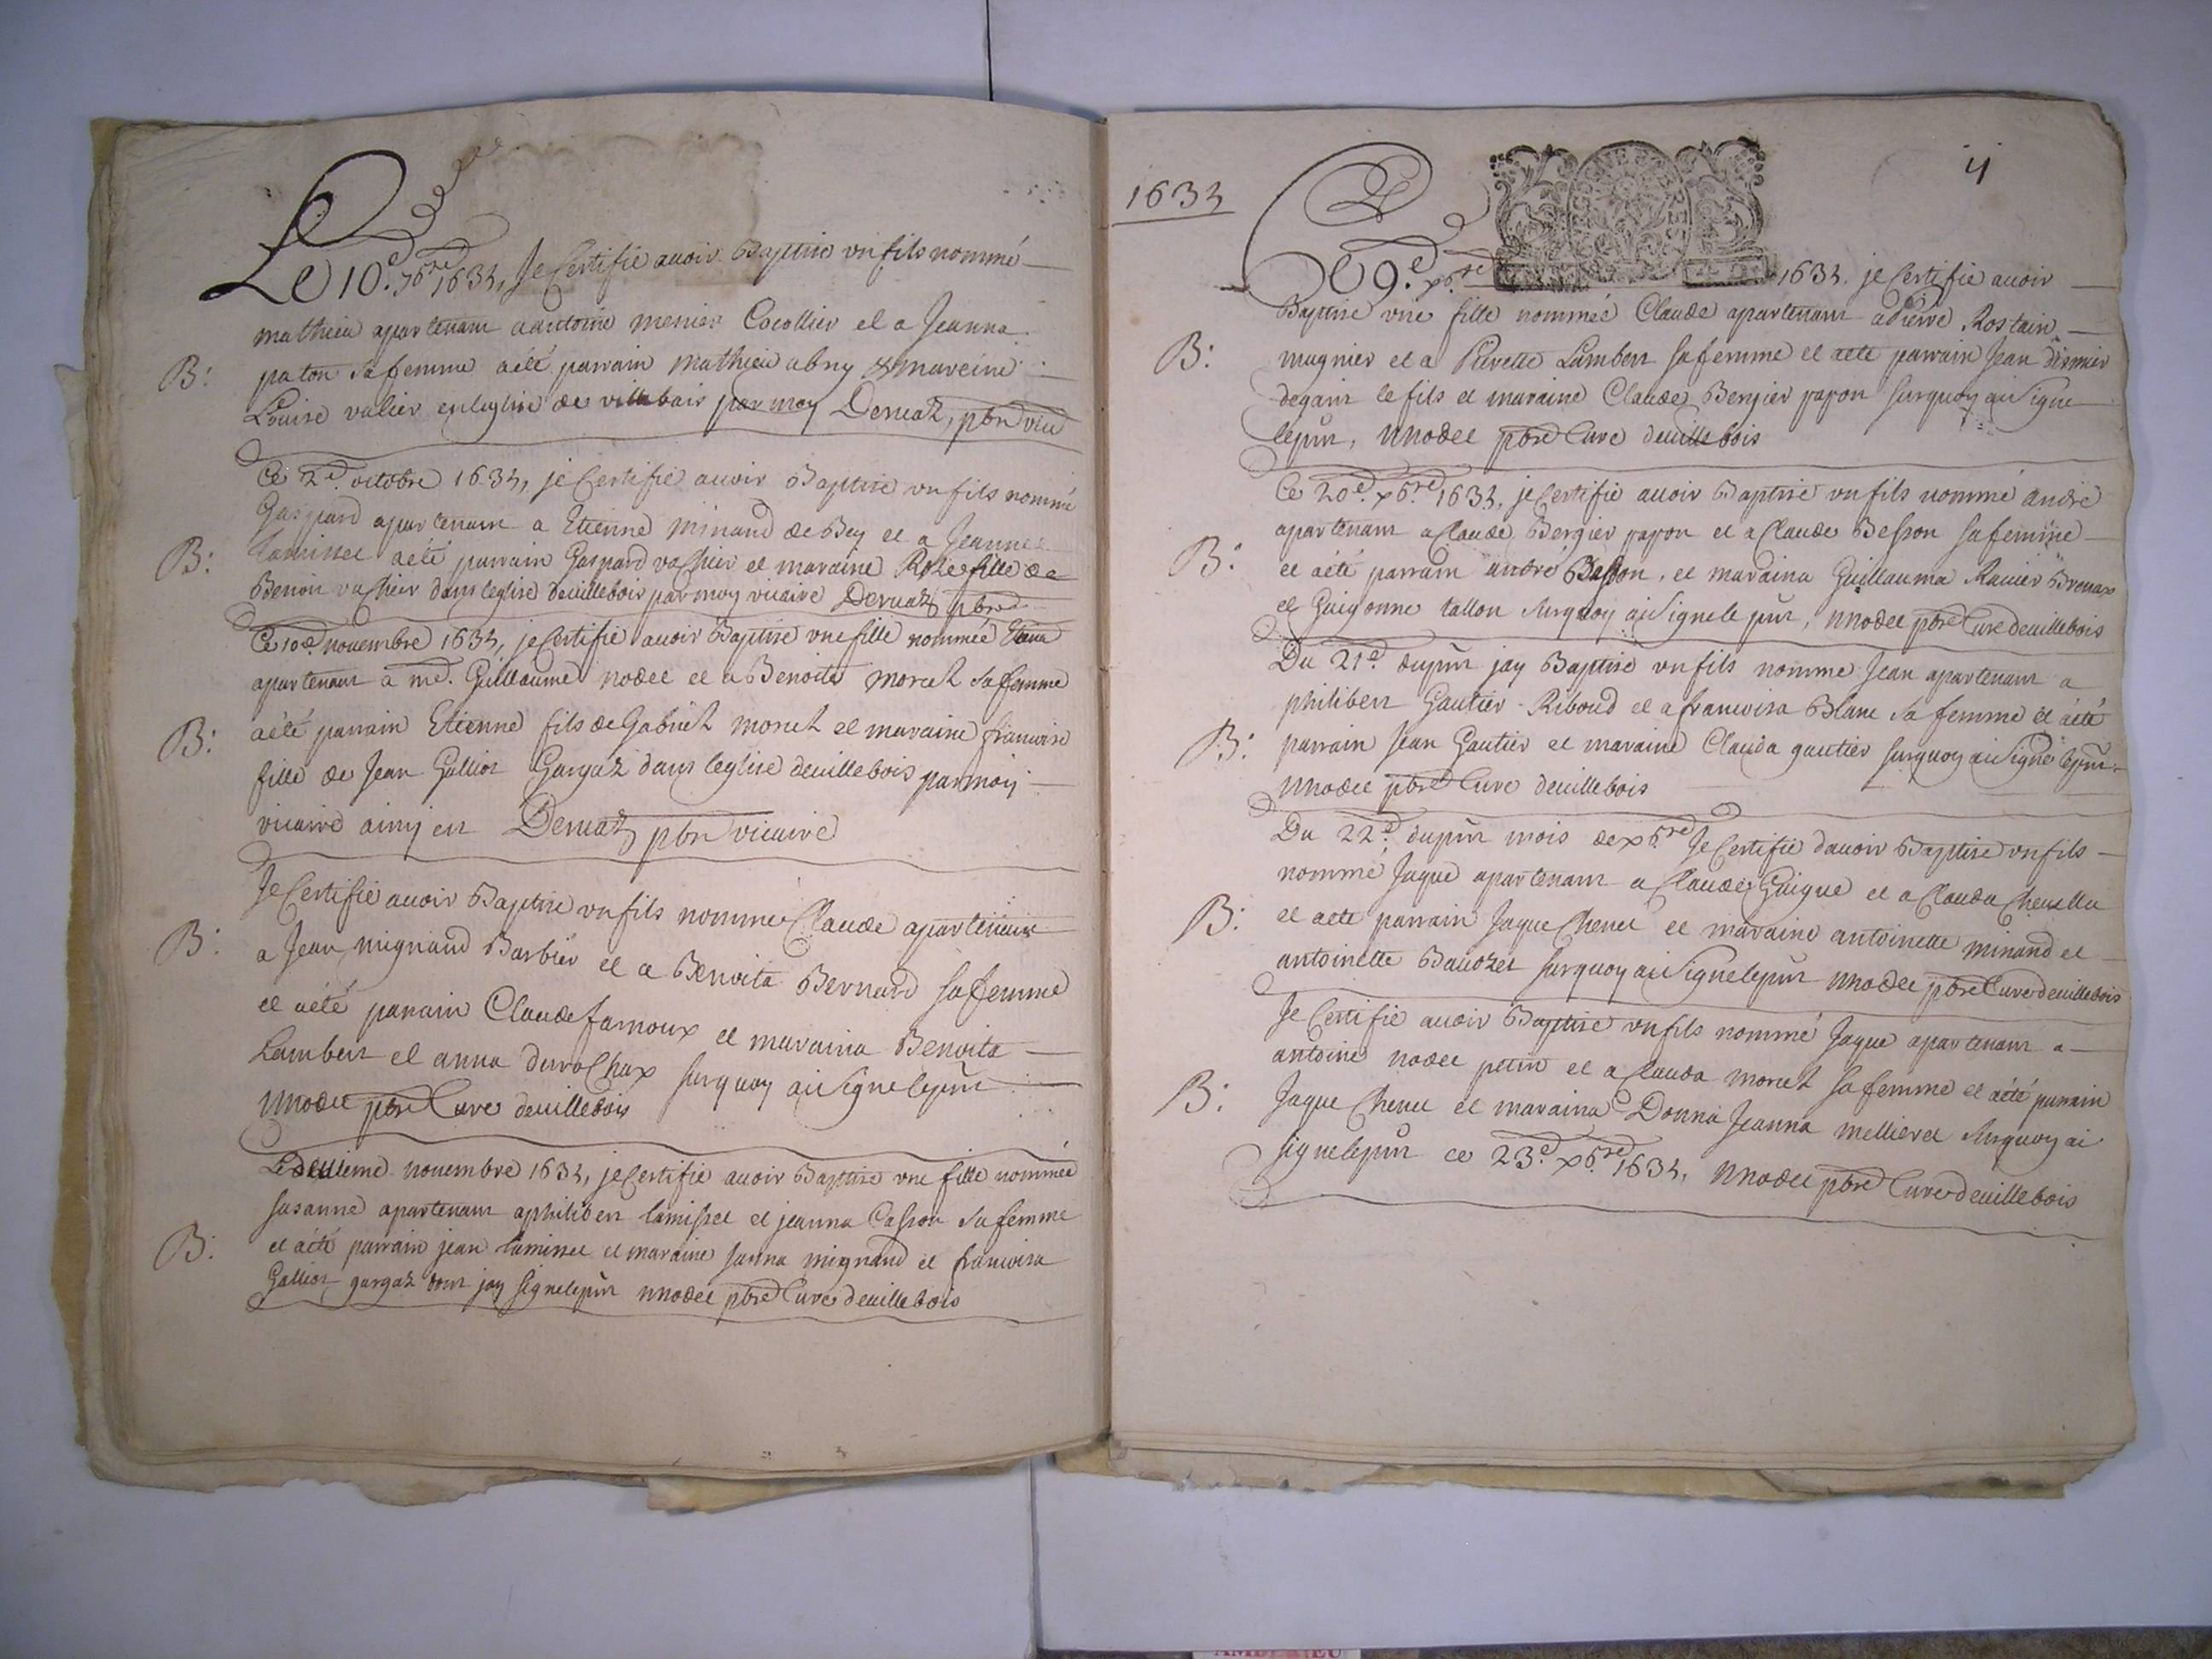 Le 10.e 7bre 1634, Je Certifie auoir Baptisé un fils nommé
mathieu apartenant a antoine menier Cocollier et a Jeanna
B: paton sa femme a été parrain mathieu abry & mareine
Louise valier en leglise de villebois par moy Deruaz, pbre vic
Ce 2.e octobre 1634, je Certifie auoir Baptisé un fils nommé
Gaspard apartenant a Etienne minand de Bey et a Jeanne
B: lamissel a été parrain Gaspard vachier et maraine Roze fille de
Benoit vachier dans leglise deuillebois par moy vicaire Deruaz pbre
Ce 10.e nouembre 1634, je Certifie auoir Baptisé une fille nommée
apartenant a me. Guillaume nodet et a Benoita moret sa femme
B: a été parrain Etienne fils de Gabriel moret et maraine francoise
fille de Jean Galliot Gargaz dans leglise deuillebois par moy
vicaire ainsy est Deruaz pbre vicaire
Je Certifie auoir Baptisé un fils nommé Claude apartenant
B: a Jean mignand Barbier et a Benoita Bernard sa femme
et a été parrain Claude famoux et maraina Benoita
Lambert et anna durochax surquoy ai signe le pnt
nodet pbre Cure deuillebois
Le deuxieme nouembre 1634, je Certifie auoir Baptisé une fille nommée
susanne apartenant a philibert lamissel et jeanna Casson sa femme
B: et a été parrain jean lamissel et maraine sanna mignand et francoisa
Galliot gargaz dont jay signe le pnt nodet pbre Cure deuillebois
1634
4
Ce 9.e xbre 1634. je Certifie auoir
Baptisé une fille nommée Claude apartenant a pierre Rostain
B: mugnier et a Pierrette Lambert sa femme et a été parrain Jean
degain le fils et maraine Claude Bergier papon surquoy ai signe
le pnt, nodet pbre Cure deuillebois
Ce 20.e xbre 1634, je Certifie auoir Baptisé un fils nommé andré
apartenant a Claude Bergier papon et a Claude Besson sa femme
B: et a été parrain andré Besson, et maraina Guillauma Rauier
et Guigonne tallon surquoy ai signe le pnt, nodet pbre Cure deuillebois
Du 21.e dupnt jay Baptisé un fils nommé Jean apartenant a
philibert Gautier Riboud et a francoisa Blanc sa femme et a été
B: parrain Jean Gautier et maraine Clauda gautier surquoy ai signe le pnt
nodet pbre Cure deuillebois
Du 22.e dupnt mois de xbre Je Certifie dauoir Baptisé un fils
nommé Jaque apartenant a Claude Guigue et a Clauda
B: et a été parrain Jaque Chenet et maraine antoinette minand et
antoinette Bauozet surquoy ai signe le pnt nodet pbre Cure deuillebois
Je Certifie auoir Baptisé un fils nommé Jaque apartenant a
antoine nodet petin et a Clauda moret sa femme et a été parrain
B: Jaque Chenet et maraina Donna Jeanna mellieret surquoy ai
signe le pnt ce 23.e xbre 1634, nodet pbre Cure deuillebois